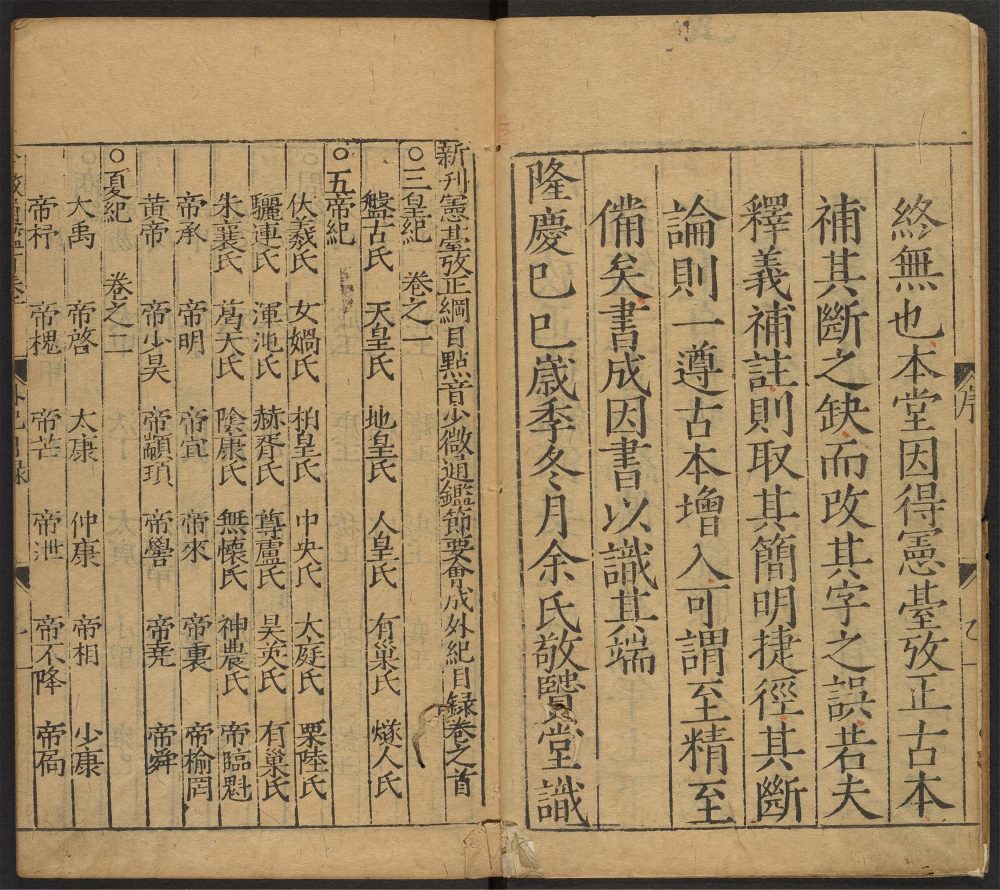 終無也本堂因得憲臺攷正古本
補其斷之缺而改其字之誤若夫
釋義補註則取其簡明捷徑其斷
論則一遵古本增入可謂至精至
備矣書成因書以識其端
隆慶己巳歲季冬月余氏敬賢堂識
序
新刊憲臺攷正綱目點音少微通鑑節要會成外紀目録卷之首
○三皇紀 卷之一
盤古氏 天皇氏 地皇氏 人皇氏 有巢氏 燧人氏
○五帝紀
伏羲氏 女媧氏 柏皇氏 中央氏 大庭氏 栗陸氏
驪連氏 渾沌氏 赫胥氏 尊盧氏 昊英氏 有巢氏
朱襄氏 葛天氏 陰康氏 無懷氏 神農氏 帝臨魁
帝承 帝明 帝宜 帝來 帝裏 帝榆罔
黄帝 帝少昊 帝顓頊 帝嚳 帝堯 帝舜
○夏紀 卷之二
大禹 帝啓 太康 仲康 帝相 少康
帝杼 帝槐 帝芒 帝泄 帝不降 帝扃
外紀目録